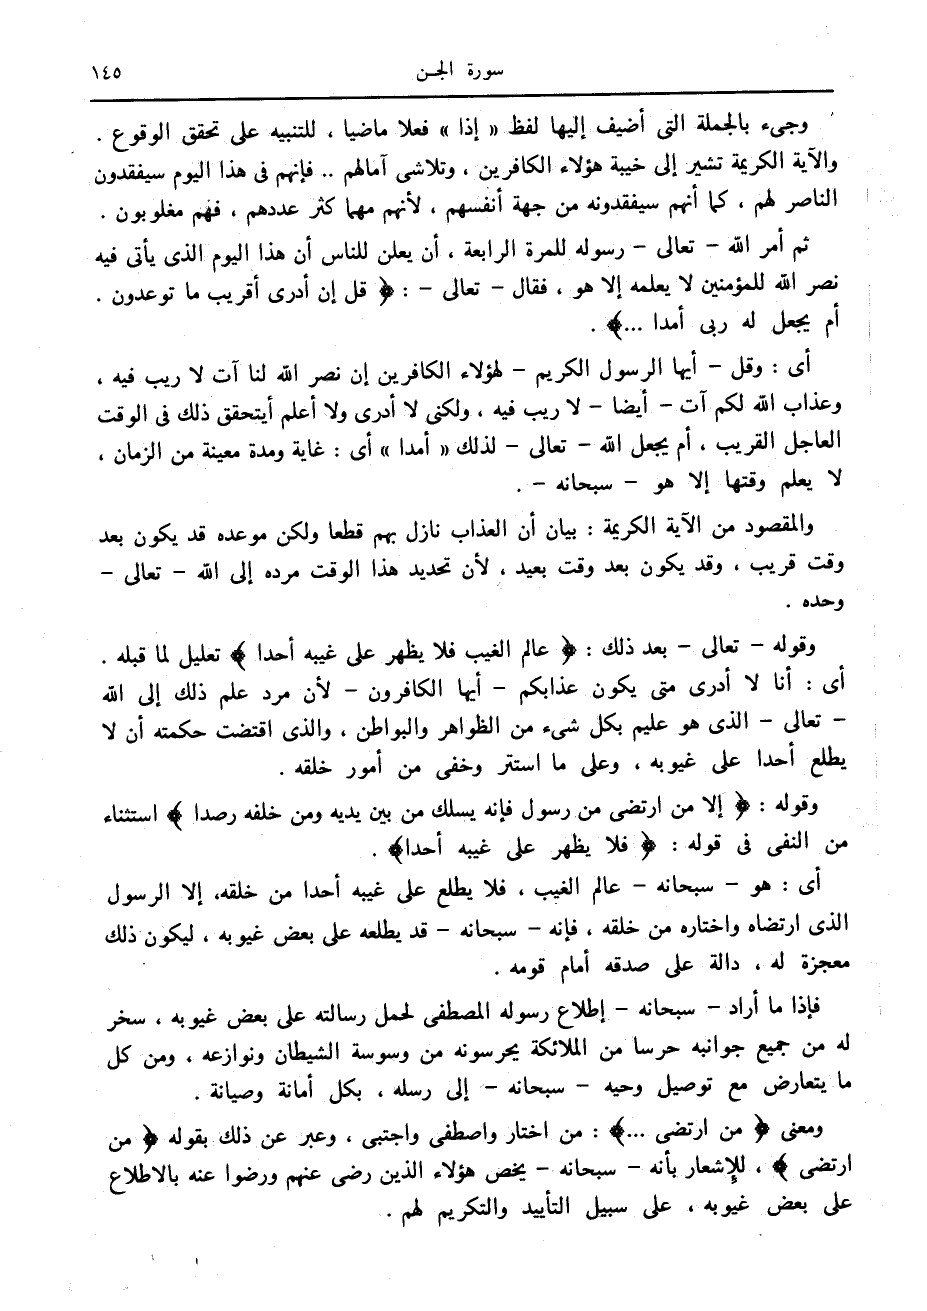 سورة الجن
١٤٥
وجىء بالجملة التى أضيف إليها لفظ « إذا » فعلا ماضيا ، للتنبيه على تحقق الوقوع .
والآية الكريمة تشير إلى خيبة هؤلاء الكافرين ، وتلاشى آمالهم .. فإنهم فى هذا اليوم سيفقدون
الناصر لهم ، كما أنهم سيفقدونه من جهة أنفسهم ، لأنهم مهما كثر عددهم ، فهم مغلوبون .
ثم أمر الله – تعالى – رسوله للمرة الرابعة ، أن يعلن للناس أن هذا اليوم الذى يأتى فيه
نصر الله للمؤمنين لا يعلمه إلا هو ، فقال – تعالى – : ﴿ قل إن أدرى أقريب ما توعدون .
أم يجعل له ربى أمدا ...﴾ .
أى : وقل – أيها الرسول الكريم – لهؤلاء الكافرين إن نصر الله لنا آت لا ريب فيه ،
وعذاب الله لكم آت – أيضا – لا ريب فيه ، ولكنى لا أدرى ولا أعلم أيتحقق ذلك فى الوقت
العاجل القريب ، أم يجعل الله – تعالى – لذلك « أمدا » أى : غاية ومدة معينة من الزمان ،
لا يعلم وقتها إلا هو – سبحانه – .
والمقصود من الآية الكريمة : بيان أن العذاب نازل بهم قطعا ولكن موعده قد يكون بعد
وقت قريب ، وقد يكون بعد وقت بعيد ، لأن تحديد هذا الوقت مرده إلى الله – تعالى –
وحده .
وقوله – تعالى – بعد ذلك : ﴿ عالم الغيب فلا يظهر على غيبه أحدا ﴾ تعليل لما قبله .
أى : أنا لا أدرى متى يكون عذابكم – أيها الكافرون – لأن مرد علم ذلك إلى الله
– تعالى – الذى هو عليم بكل شىء من الظواهر والبواطن ، والذى اقتضت حكمته أن لا
يطلع أحدا على غيوبه ، وعلى ما استتر وخفى من أمور خلقه .
وقوله : ﴿ إلا من ارتضى من رسول فإنه يسلك من بين يديه ومن خلفه رصدا ﴾ استثناء
من النفى فى قوله : ﴿ فلا يظهر على غيبه أحدا﴾ .
أى : هو – سبحانه – عالم الغيب ، فلا يطلع على غيبه أحدا من خلقه، إلا الرسول
الذى ارتضاه واختاره من خلقه ، فإنه – سبحانه – قد يطلعه على بعض غيوبه ، ليكون ذلك
معجزة له ، دالة على صدقه أمام قومه .
فإذا ما أراد – سبحانه – إطلاع رسوله المصطفى لحمل رسالته على بعض غيوبه ، سخر
له من جميع جوانبه حرسا من الملائكة يحرسونه من وسوسة الشيطان ونوازعه ، ومن كل
ما يتعارض مع توصيل وحيه – سبحانه – إلى رسله ، بكل أمانة وصيانة .
ومعنى ﴿ من ارتضى ...﴾ : من اختار واصطفى واجتبى ، وعبر عن ذلك بقوله ﴿ من
ارتضى ﴾ ، للإشعار بأنه – سبحانه – يخص هؤلاء الذين رضى عنهم ورضوا عنه بالاطلاع
على بعض غيوبه ، على سبيل التأييد والتكريم لهم .